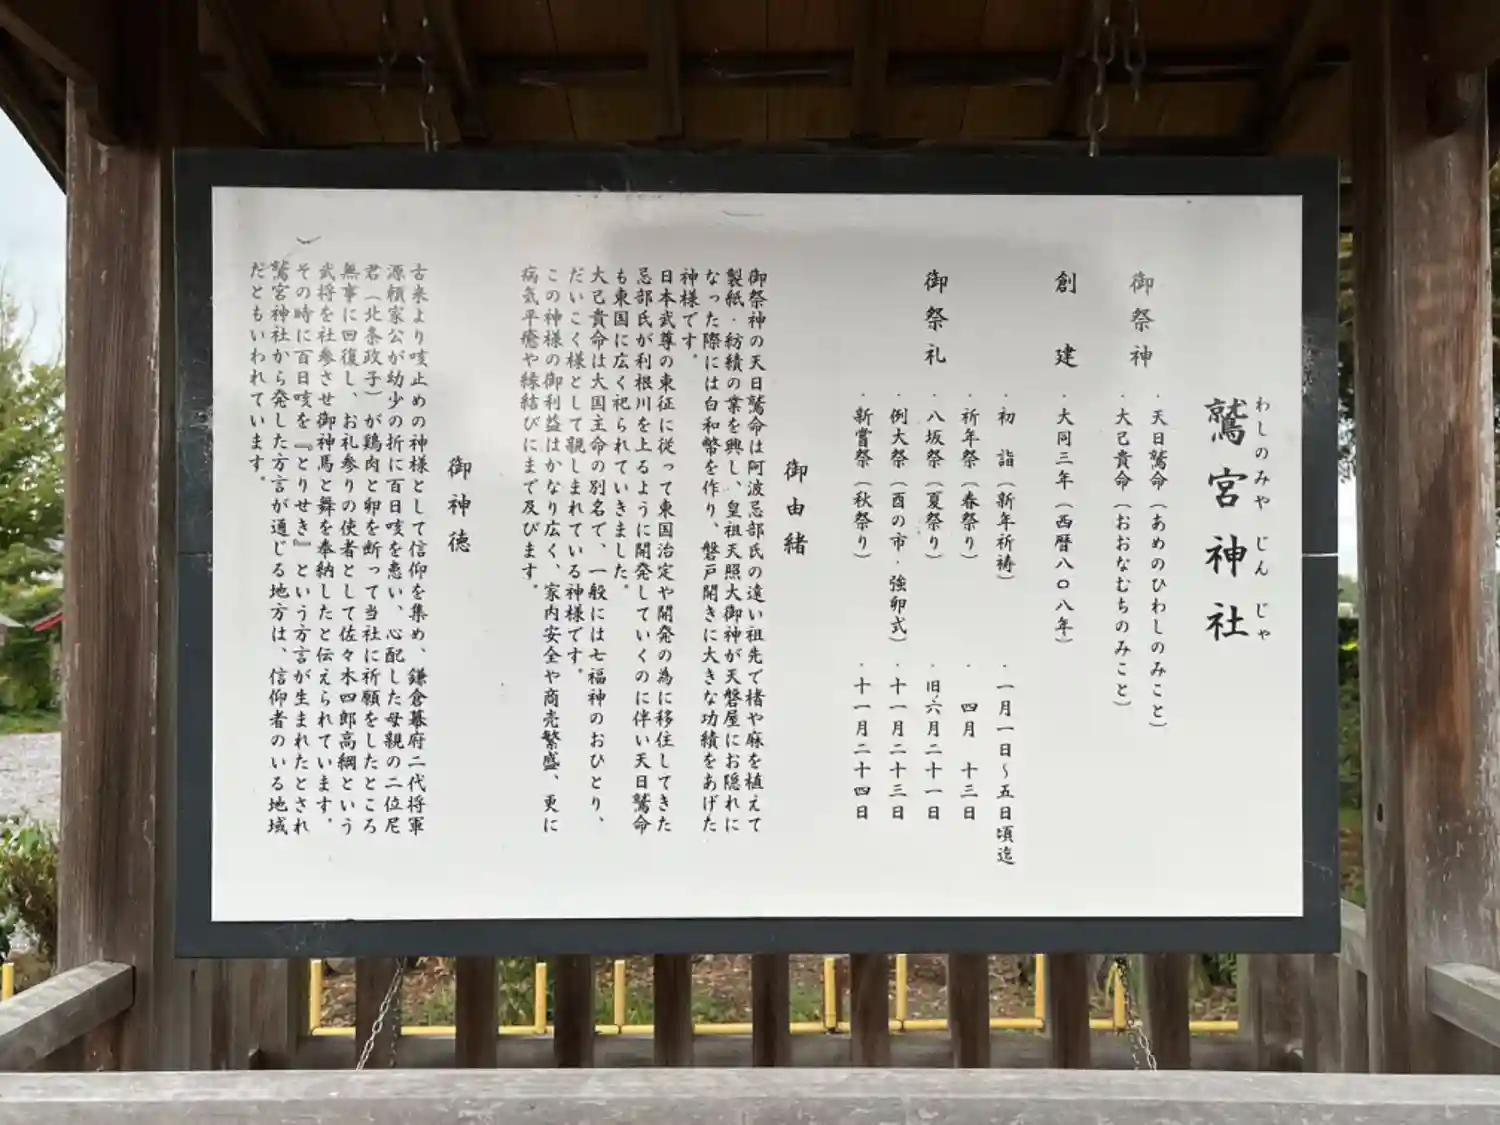 わしのみや じん じゃ
鷲宮神社
御祭神
・天日鷲命（あめのひわしのみこと）
・大己貴命（おおなむちのみこと）
創建
・大同三年（西暦八〇八年）
御祭礼
・初 詣（新年祈祷） ・一月一日～五日頃迄
・祈年祭（春祭り） ・四月 十三日
・八坂祭（夏祭り） ・旧六月二十一日
・例大祭（酉の市・強卵式） ・十一月二十三日
・新嘗祭（秋祭り） ・十一月二十四日
御由緒
御祭神の天日鷲命は阿波忌部氏の遠い祖先で楮や麻を植えて
製紙・紡績の業を興し、皇祖天照大御神が天磐屋にお隠れに
なった際には白和幣を作り、磐戸開きに大きな功績をあげた
神様です。
日本武尊の東征に従って東国治定や開発の為に移住してきた
忌部氏が利根川を上るように開発していくのに伴い天日鷲命
も東国に広く祀られていきました。
大己貴命は大国主命の別名で、一般には七福神のおひとり、
だいこく様として親しまれている神様です。
この神様の御利益はかなり広く、家内安全や商売繁盛、更に
病気平癒や縁結びにまで及びます。
御神徳
古来より咳止めの神様として信仰を集め、鎌倉幕府二代将軍
源頼家公が幼少の折に百日咳を患い、心配した母親の二位尼
君（北条政子）が鶏肉と卵を断って当社に祈願をしたところ
無事に回復し、お礼参りの使者として佐々木四郎高綱という
武将を社参させ御神馬と舞を奉納したと伝えられています。
その時に百日咳を『とりせき』という方言が生まれたとされ
鷲宮神社から発した方言が通じる地方は、信仰者のいる地域
だともいわれています。